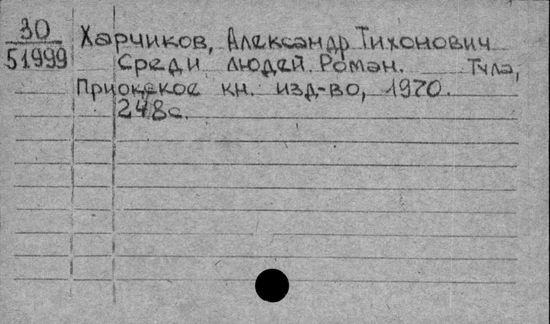 30
51999
Харчиков, Александр Тихонович
Среди людей. Роман. Тула,
Приокское кн. изд-во, 1970.
248с.